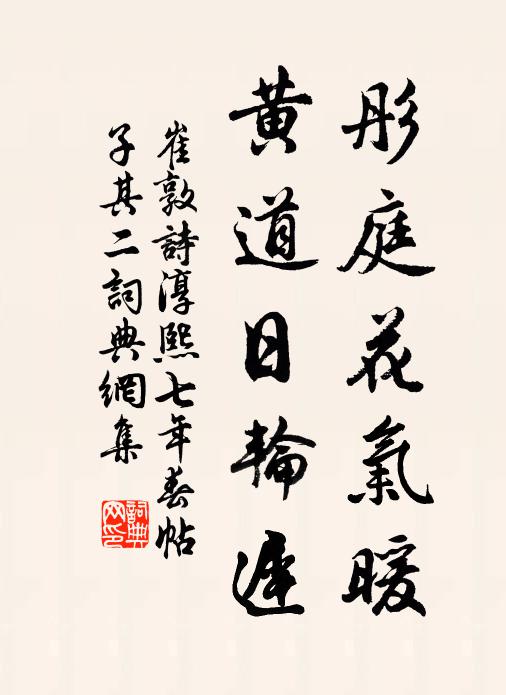 彤庭花氣暖
黃道日輪遲
崔敦詩淳熙七年春帖
子其二詞典網集
詞典
网印